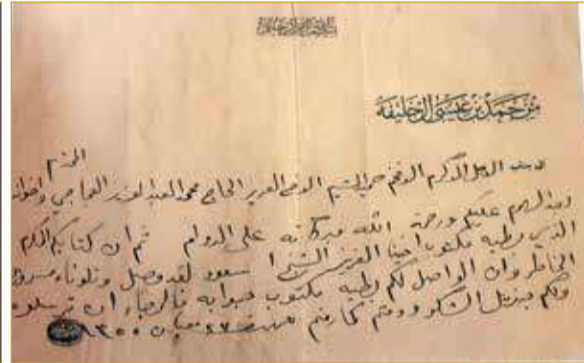 بسم الله الرحمن الرحيم
من حمد بن عيسى آل خليفه
الاجل الاكرم الافخم حميد الشيم الاعز الحاج محمد العبد العزيز العجاجي واخوانه
المحترم
بعد السلام عليكم ورحمة الله وبركاته على الدوام ثم ان كتابكم المكرم
الذي بطيه مكتوب اخينا العزيز الشيخ سعود لقد وصل وتلوناه مسرة
الخاطر وان الواصل لكم بطيه مكتوب جوابه فالرجاء ان ترسلوه
ولكم جزيل الشكر ودمتم كما رمتم ١٣٥٥